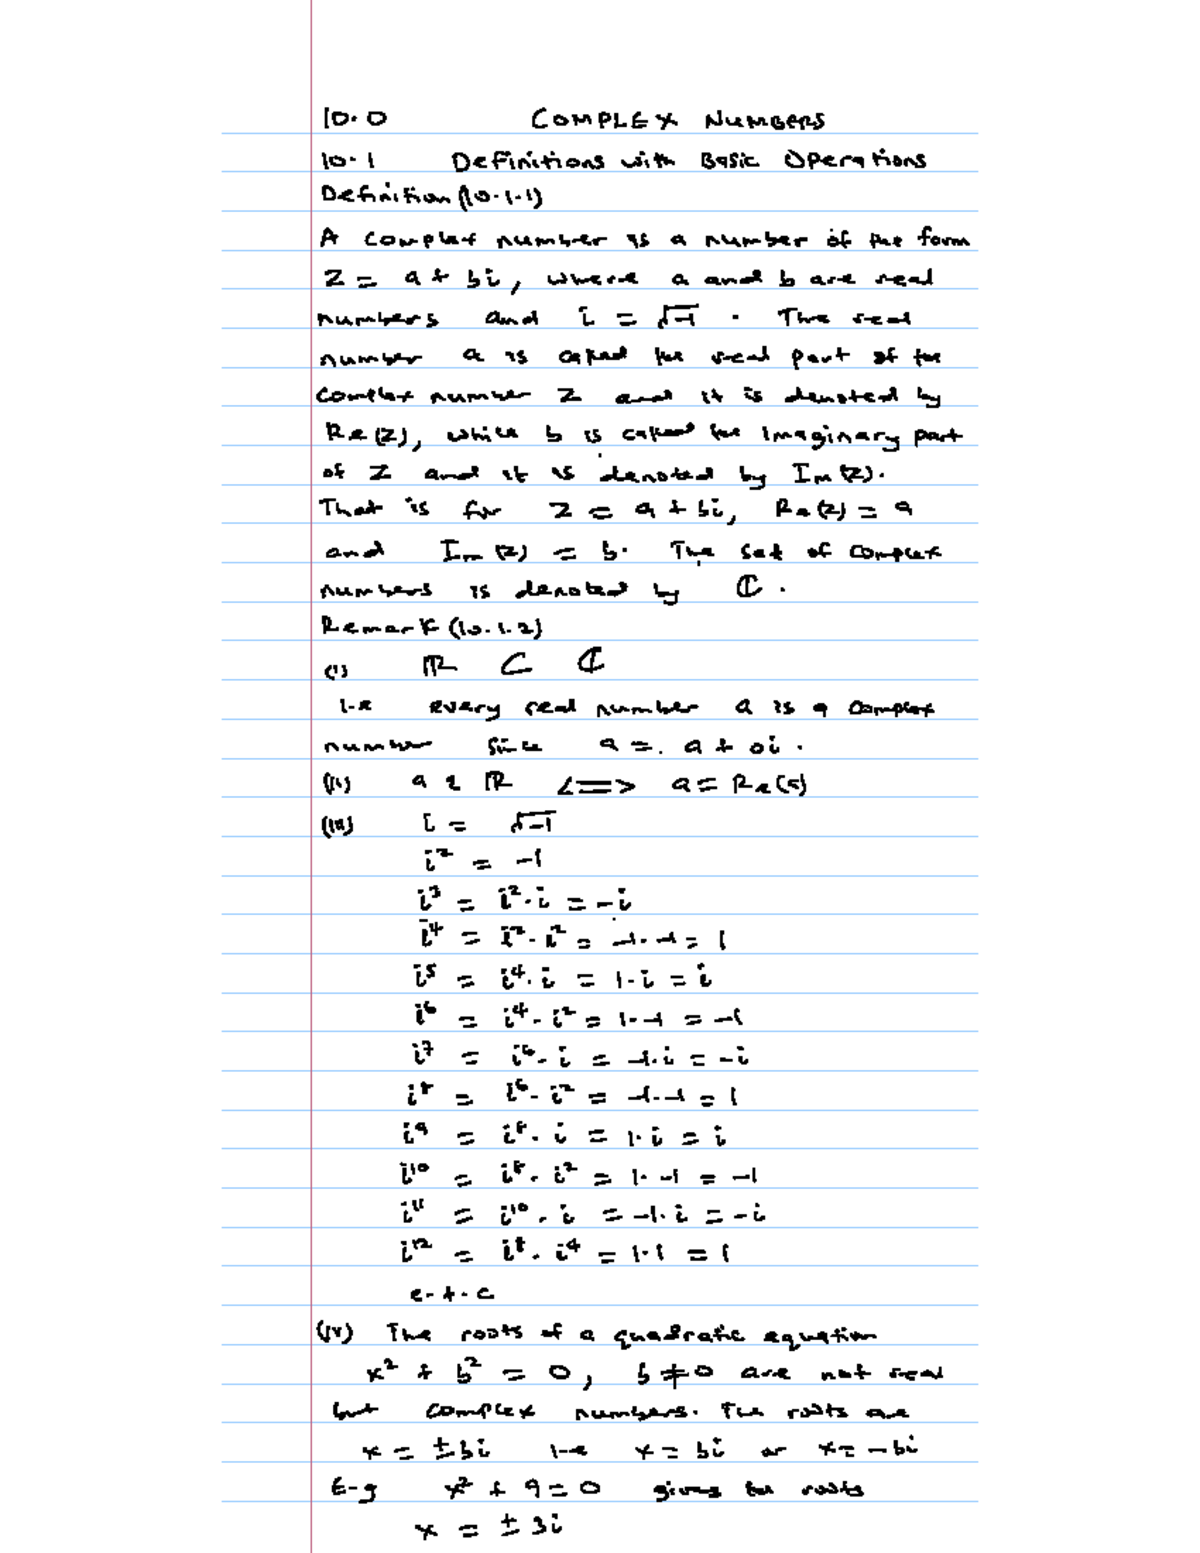 10.0 COMPLEX NUMBERS
10.1 Definitions with Basic Operations
Definition (10.1.1)
A complex number is a number of the form
Z = a + bi, where a and b are real
numbers and i = √-1 . The real
number a is called the real part of the
complex number Z and it is denoted by
Re(Z), while b is called the Imaginary part
of Z and it is denoted by Im(Z).
That is for Z = a + bi, Re(Z) = a
and Im(Z) = b. The set of complex
numbers is denoted by ℂ .
Remark (10.1.2)
(i) ℝ ⊂ ℂ
i.e every real number a is a complex
number since a = a + 0i .
(ii) a ε ℝ <=> a = Re(a)
(iii) i = √-1
i² = -1
i³ = i².i = -i
i⁴ = i².i² = -1.-1 = 1
i⁵ = i⁴.i = 1.i = i
i⁶ = i⁴.i² = 1.-1 = -1
i⁷ = i⁶.i = -1.i = -i
i⁸ = i⁶.i² = -1.-1 = 1
i⁹ = i⁸.i = 1.i = i
i¹⁰ = i⁸.i² = 1.-1 = -1
i¹¹ = i¹⁰.i = -1.i = -i
i¹² = i⁸.i⁴ = 1.1 = 1
e.t.c
(iv) The roots of a quadratic equation
x² + b² = 0, b ≠ 0 are not real
but complex numbers. The roots are
x = ±bi i.e x = bi or x = -bi
E.g x² + 9 = 0 gives the roots
x = ± 3i